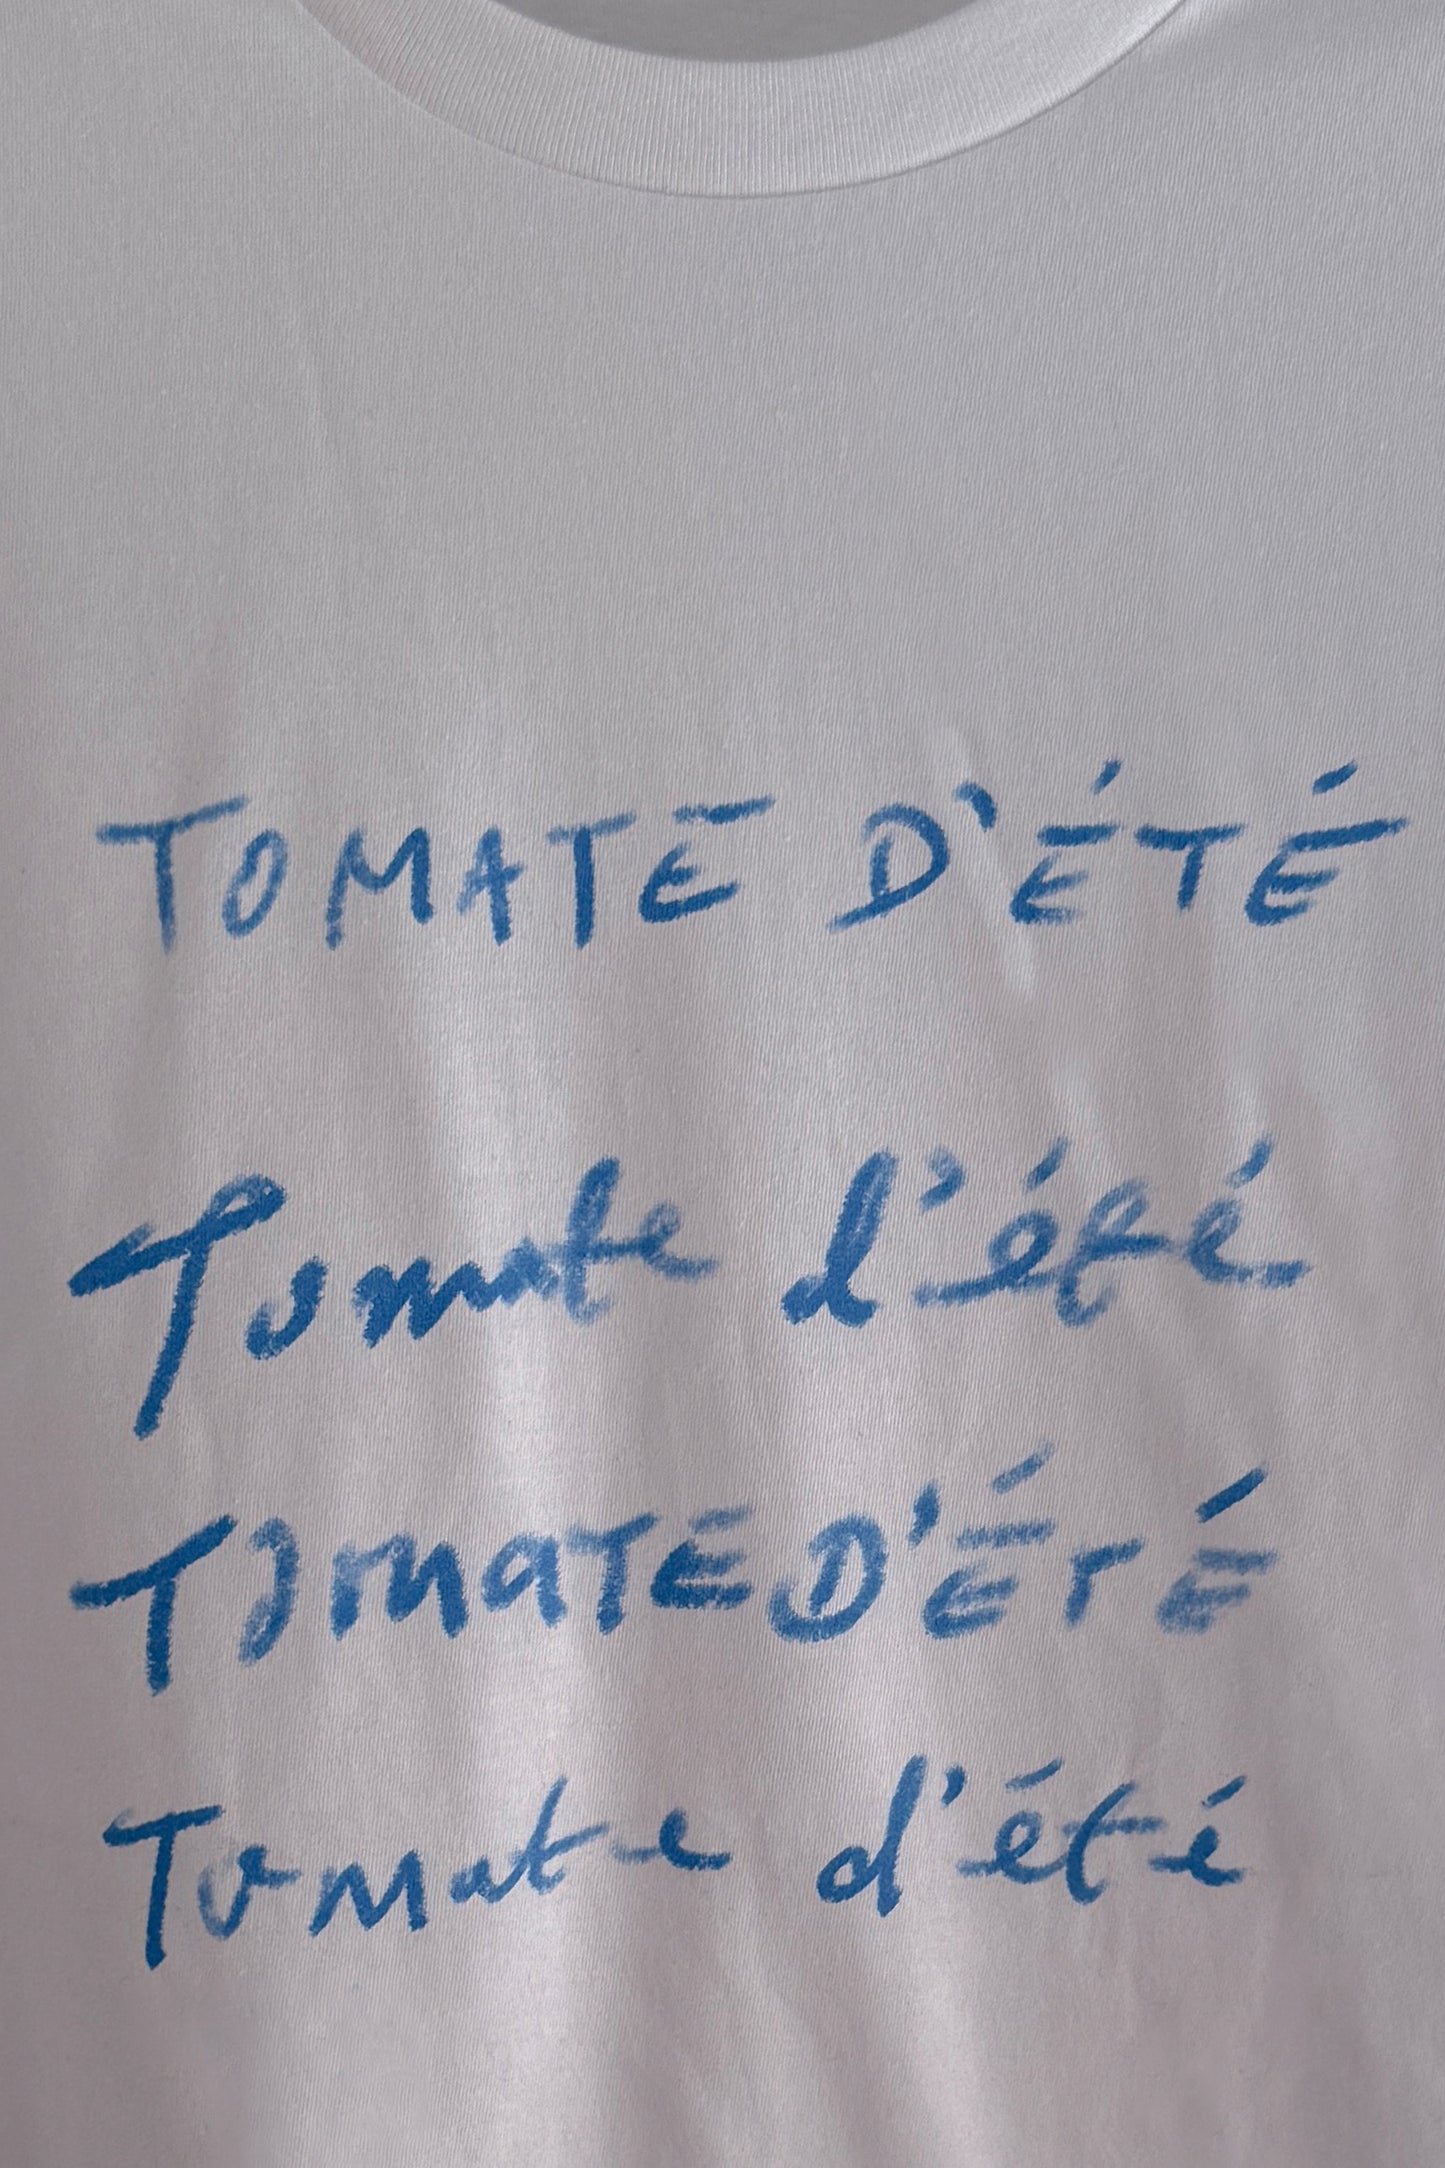 TOMATE D'ÉTÉ
Tomate d'été
TOMATE D'ÉTÉ
Tomate d'été